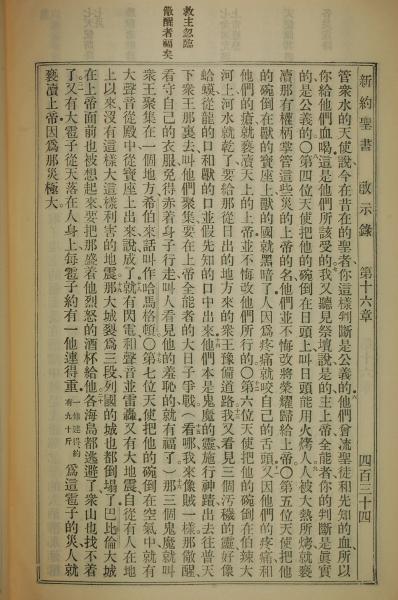 救主忽臨
儆醒者福矣
新約聖書　啟示錄　第十六章　四百三十四
管衆水的天使說今在昔在的聖者你這樣判斷是公義的他們曾流聖徒和先知的血所以
你給他們血喝這是他們所該受的我又聽見祭壇說是的主上帝全能者你的判斷是眞實
的是公義的〇第四位天使把他的碗倒在日頭上叫日頭能用火烤人人被大熱所烤就褻
瀆那有權柄掌管這些災的上帝的名他們並不悔改將榮耀歸給上帝〇第五位天使把他
的碗倒在獸的寶座上獸的國就黑暗了人因爲疼痛就咬自己的舌頭又因他們的疼痛和
他們的瘡就褻瀆天上的上帝並不悔改他們所行的〇第六位天使把他的碗倒在伯辣大
河上河水就乾了要給那從日出的地方來的衆王豫備道路我又看見三個汚穢的靈好像
蛤蟆從龍的口和獸的口並假先知的口中出來他們本是鬼魔的靈施行神蹟出去往普天
下衆王那裏去叫他們聚集要在上帝全能者的大日子爭戰(看哪我來像賊一樣那儆醒
看守自己的衣服免得赤着身子行走叫人看見他的羞恥的就有福了)那三個鬼魔就叫
衆王聚集在一個地方希伯來話叫作哈馬格頓〇第七位天使把他的碗倒在空氣中就有
大聲音從殿中從寶座上出來說成了就有閃電和聲音並雷轟又有大地震自從有人在地
上以來沒有這樣大這樣利害的地震那大城裂爲三段列國的城也都倒塌了巴比倫大城
在上帝面前也被想起來要把那盛着他烈怒的酒杯給他各海島都逃避了衆山也找不着
了又有大雹子從天落在人身上每雹子約有一他連得重一他連得約有九十斤爲這雹子的災人就
褻瀆上帝因爲那災極大